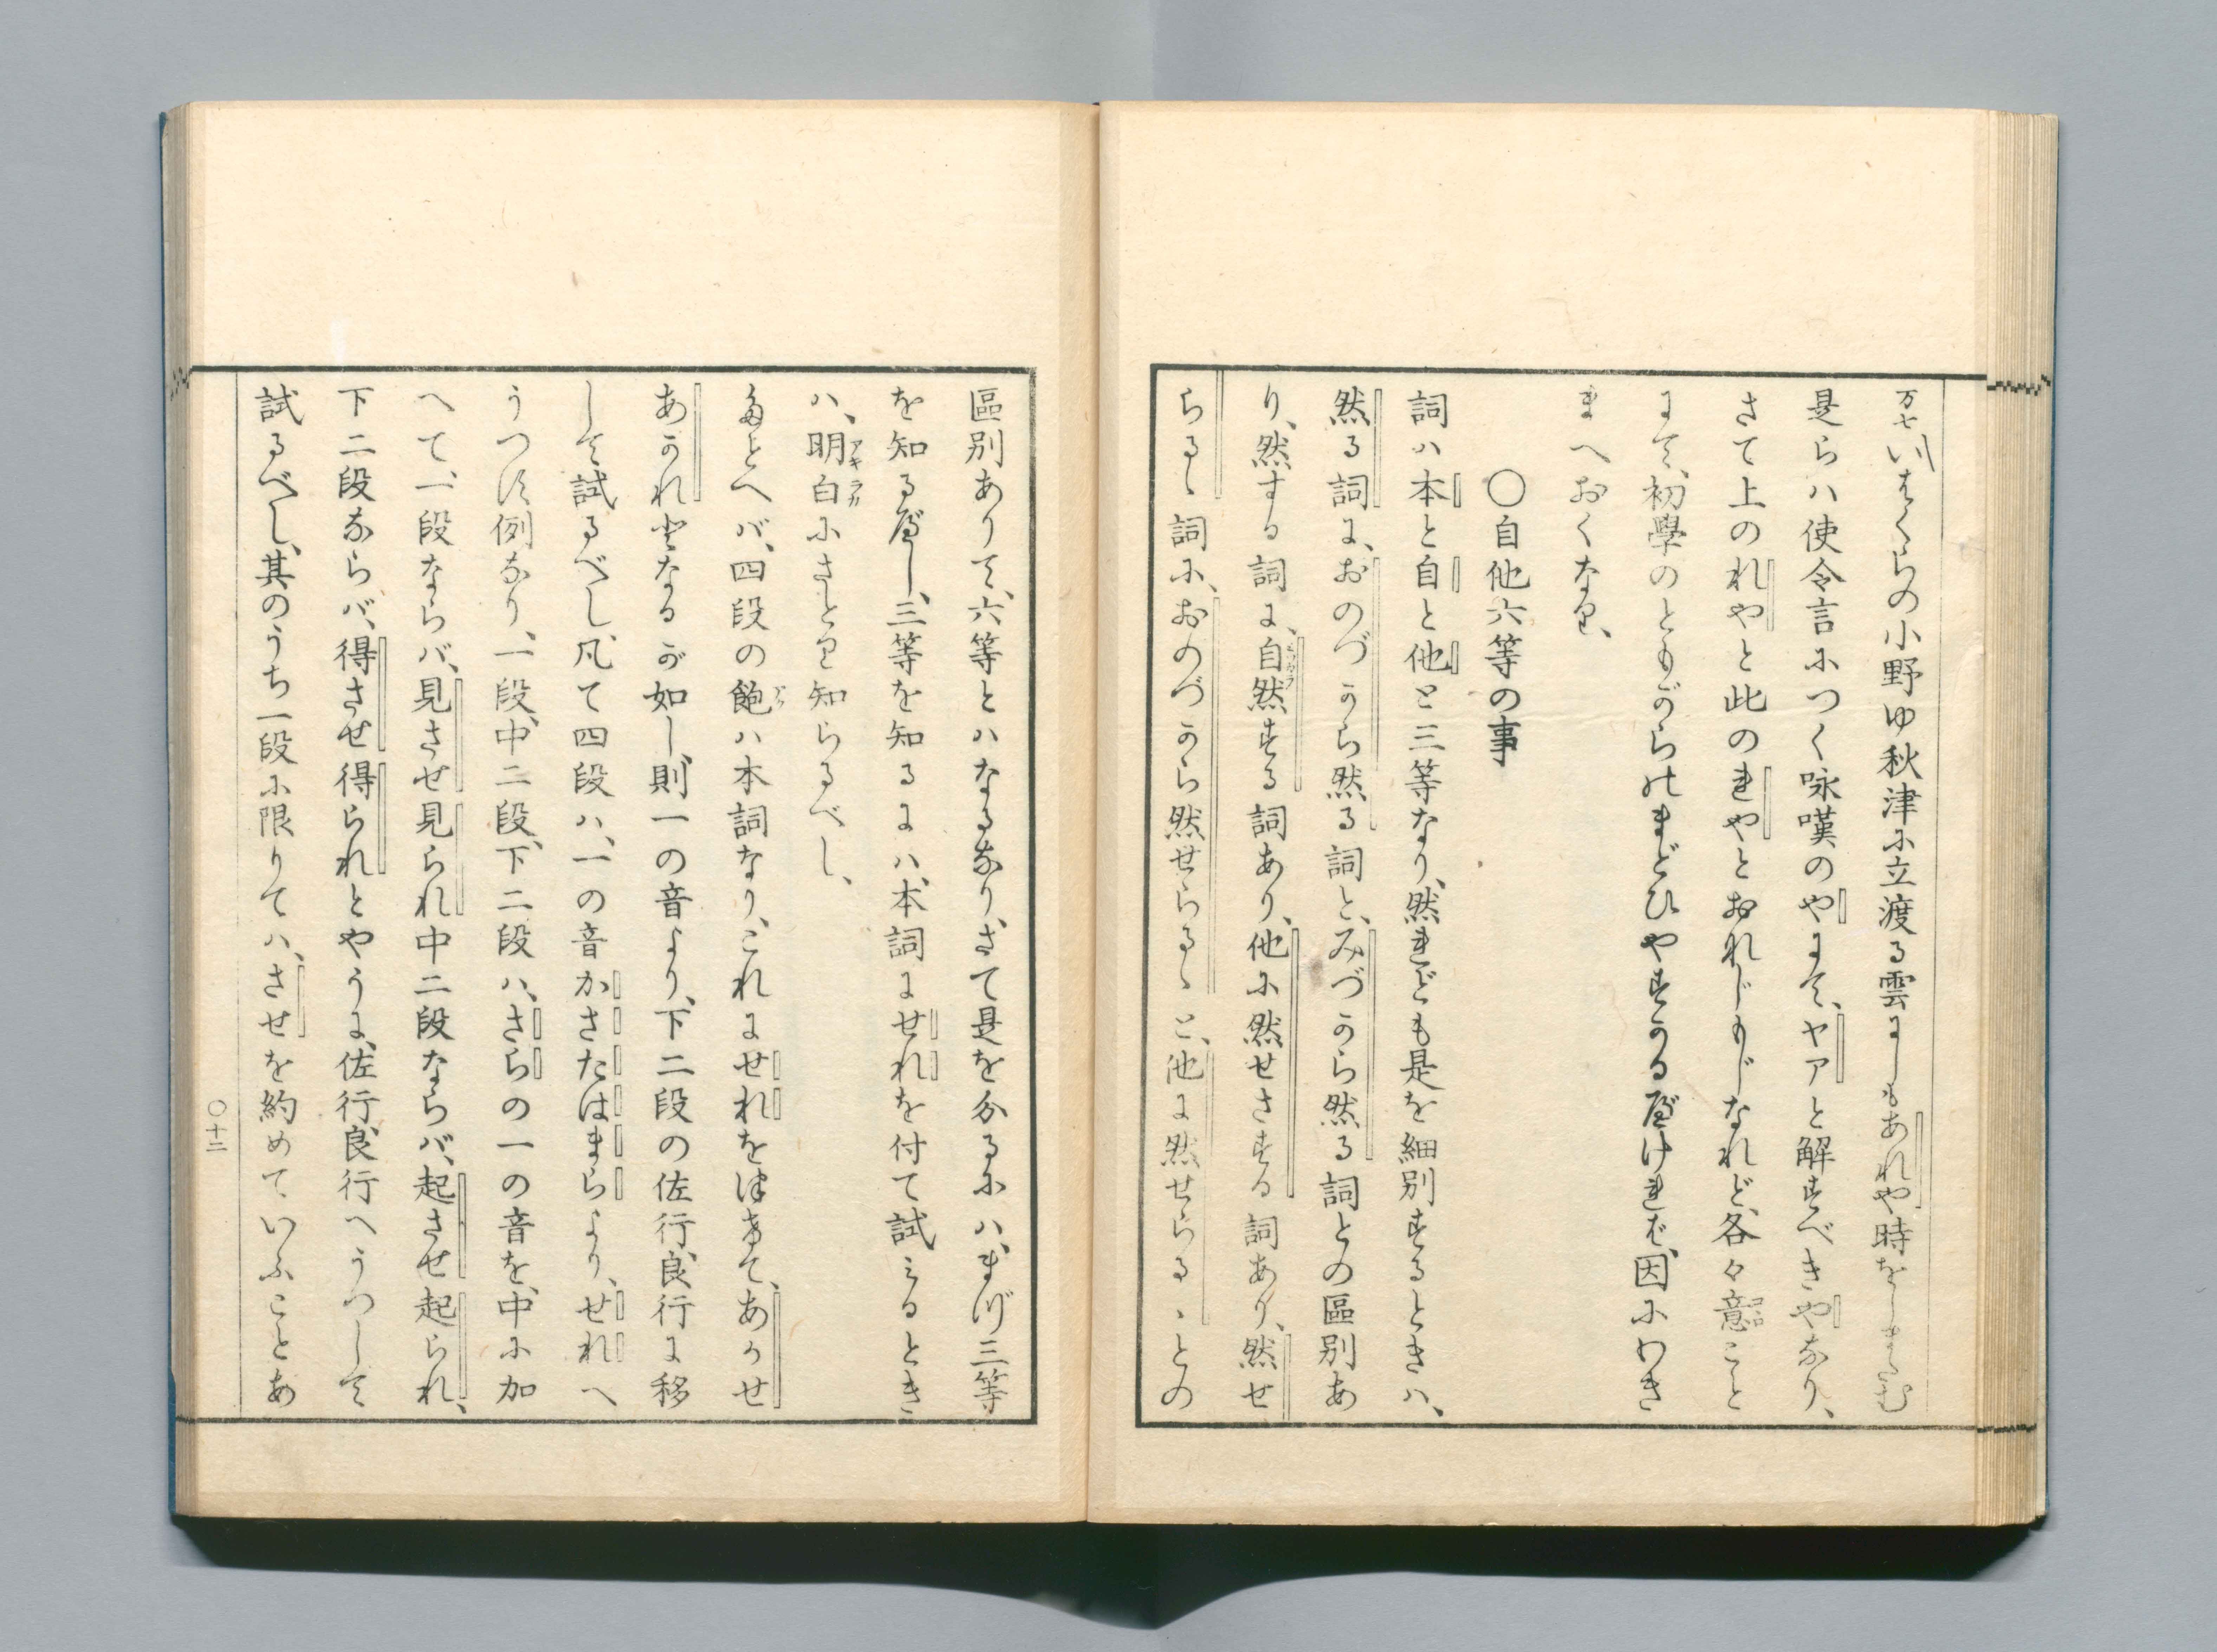 万七いはくらの小野ゆ秋津に立渡る雲にしもあれや時をしまたむ
是らハ使令言につく咏嘆のやにて、ヤアと解すべきやなり、
さて上のれやと此のれやとおれじもじなれど、各々意コヽロこと
にて、初學のともがらのまどひやすかるべければ、因にわき
まへおくなり、
〇自他六等の事
詞ハ本と自と他と三等なり、然れども是を細別するときハ、
然る詞に、おのづから然る詞と、みづから然る詞との區別あ
り、然する詞に、自然する詞あり、他に然せさする詞あり、然せ
らるゝ詞に、おのづから然せらるゝと、他に然せらるゝとの
區別ありて、六等とハなるなり、さて是を分るにハ、まづ三等
を知るべし、三等を知るにハ、本詞にせれを付て試みるとき
ハ、明白アキラカにさとり知らるべし、
たとへバ、四段の飽ハ本詞なり、これにせれをつけて、あかせ
あかれとなるが如し、則一の音より、下二段の佐行良行に移
して試るべし、凡て四段ハ、一の音かさたはまらより、せれへ
うつす例なり、一段、中二段、下二段ハ、さらの一の音を、中に加
へて、一段ならバ、見させ見られ中二段ならバ、起させ起られ、
下二段ならバ、得させ得られとやうに、佐行良行へうつして
試るべし、其のうち一段に限りてハ、させを約めていふことあ
〇十二